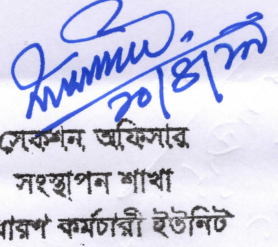 ২০/৪/২৭
সেকশন অফিসার
সংস্থাপন শাখা
ধারণ কর্মচারী ইউনিট